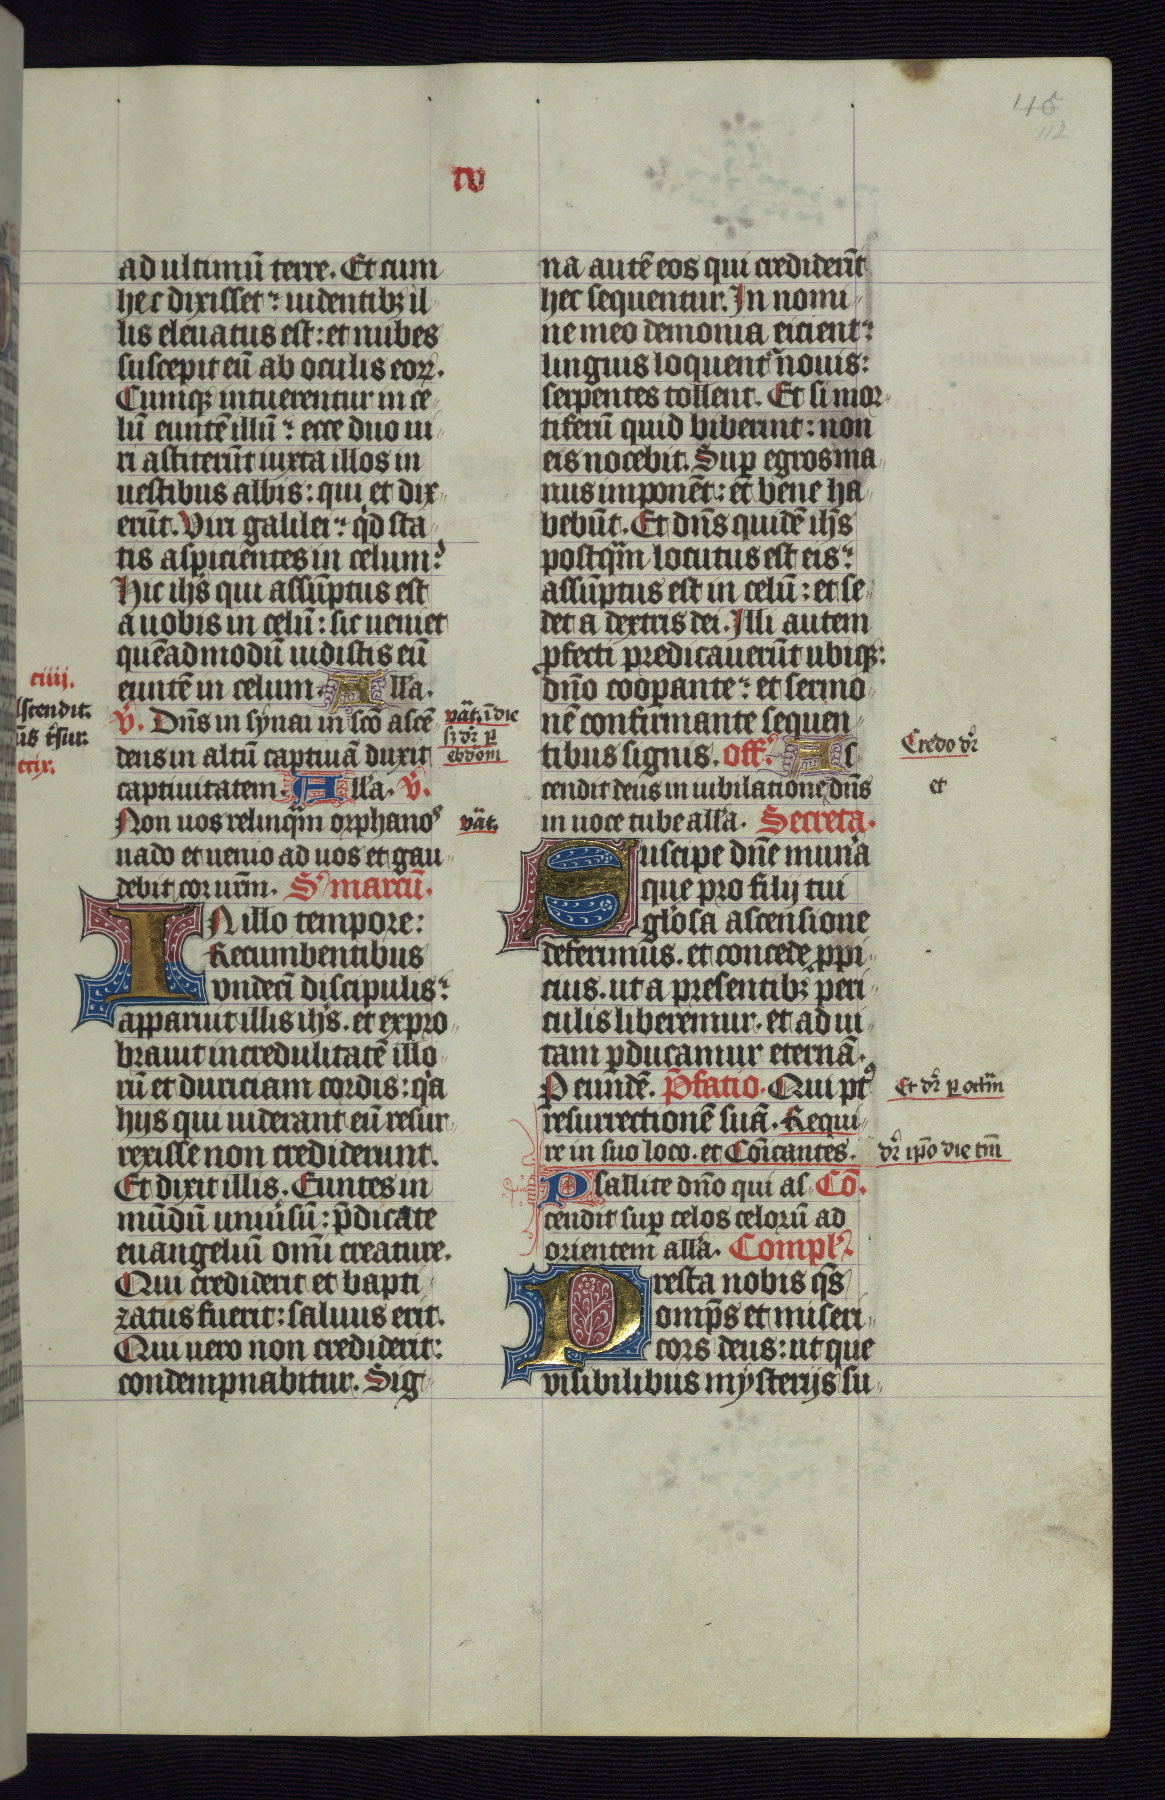 45
112
rv
ad ultimū terre. Et cum
hec dixisset: uidentibꝫ il
lis eleuatus est: et nubes
suscepit eū ab oculis eoꝝ.
Cumqꝫ intuerentur in ce
lū euntē illū: ecce duo ui
ri astiterūt iuxta illos in
uestibus albis: qui et dix
erūt. Viri galilei: qͥd sta
tis aspicientes in celum?
Hic ihs̄ qui assūptus est
a uobis in celū: sic ueniet
quēadmodū uidistis eū
euntē in celum. Alla.
V̄. Dn̄s in synai in sc̄o ascē
dens in altū captiuā duxit
captiuitatem. Alla. V̄.
Non uos relinqͣm orphanoˢ
uado et uenio ad uos et gau
debit cor ur̄m. S marcū.
IN illo tempore:
Recumbentibus
vndecī discipulis:
apparuit illis ihs̄. et expro
brauit incredulitatē illo
rū et duriciam cordis: qͥa
hijs qui uiderant eū resur
rexisse non crediderunt.
Et dixit illis. Euntes in
mūdū uniūsū: p̄dicate
euangeliū omī creature.
Qui crediderit et bapti
zatus fuerit: saluus erit.
Qui uero non crediderit:
condempnabitur. Sig
uāt. ī die
sꝫ dr̄ p
ebdom̄
uāt.
ciiij.
lscendit.
na autē eos qui crediderīt
hec sequentur. In nomi
ne meo demonia eicient:
linguis loquent᷑ nouis:
serpentes tollent. Et si mor
tiferū quid biberint: non
eis nocebit. Sup egros ma
nus imponēt: et bene ha
bebūt. Et dn̄s quidē ihs̄
postqͣm locutus est eis:
assūptus est in celū: et se
det a dextris dei. Illi autem
pfecti predicauerūt ubiqꝫ:
dn̄o coopante: et sermo
nē confirmante sequen
tibus signis. off. As
cendit deus in iubilatione dn̄s
in uoce tube alla. Secreta.
Suscipe dn̄e munͣa
que pro filij tui
glͦosa ascensione
deferimus. et concede ppi
cius. ut a presentibꝫ peri
culis liberemur. et ad ui
tam pducamur eternā.
P eundē. P̄fatio. Qui ptꝰ
resurrectionē suā. Requi
re in suo loco. et Cōicantes.
Psallite dn̄o qui as Cō.
cendit sup celos celorū ad
orientem alla. Compl.
Presta nobis qs̄
omp̄s et miseri
cors deus: ut que
visibilibus mysterijs su
Credo dr̄
et
Et dr̄ p octām
dr̄ ip̄o die tm̄